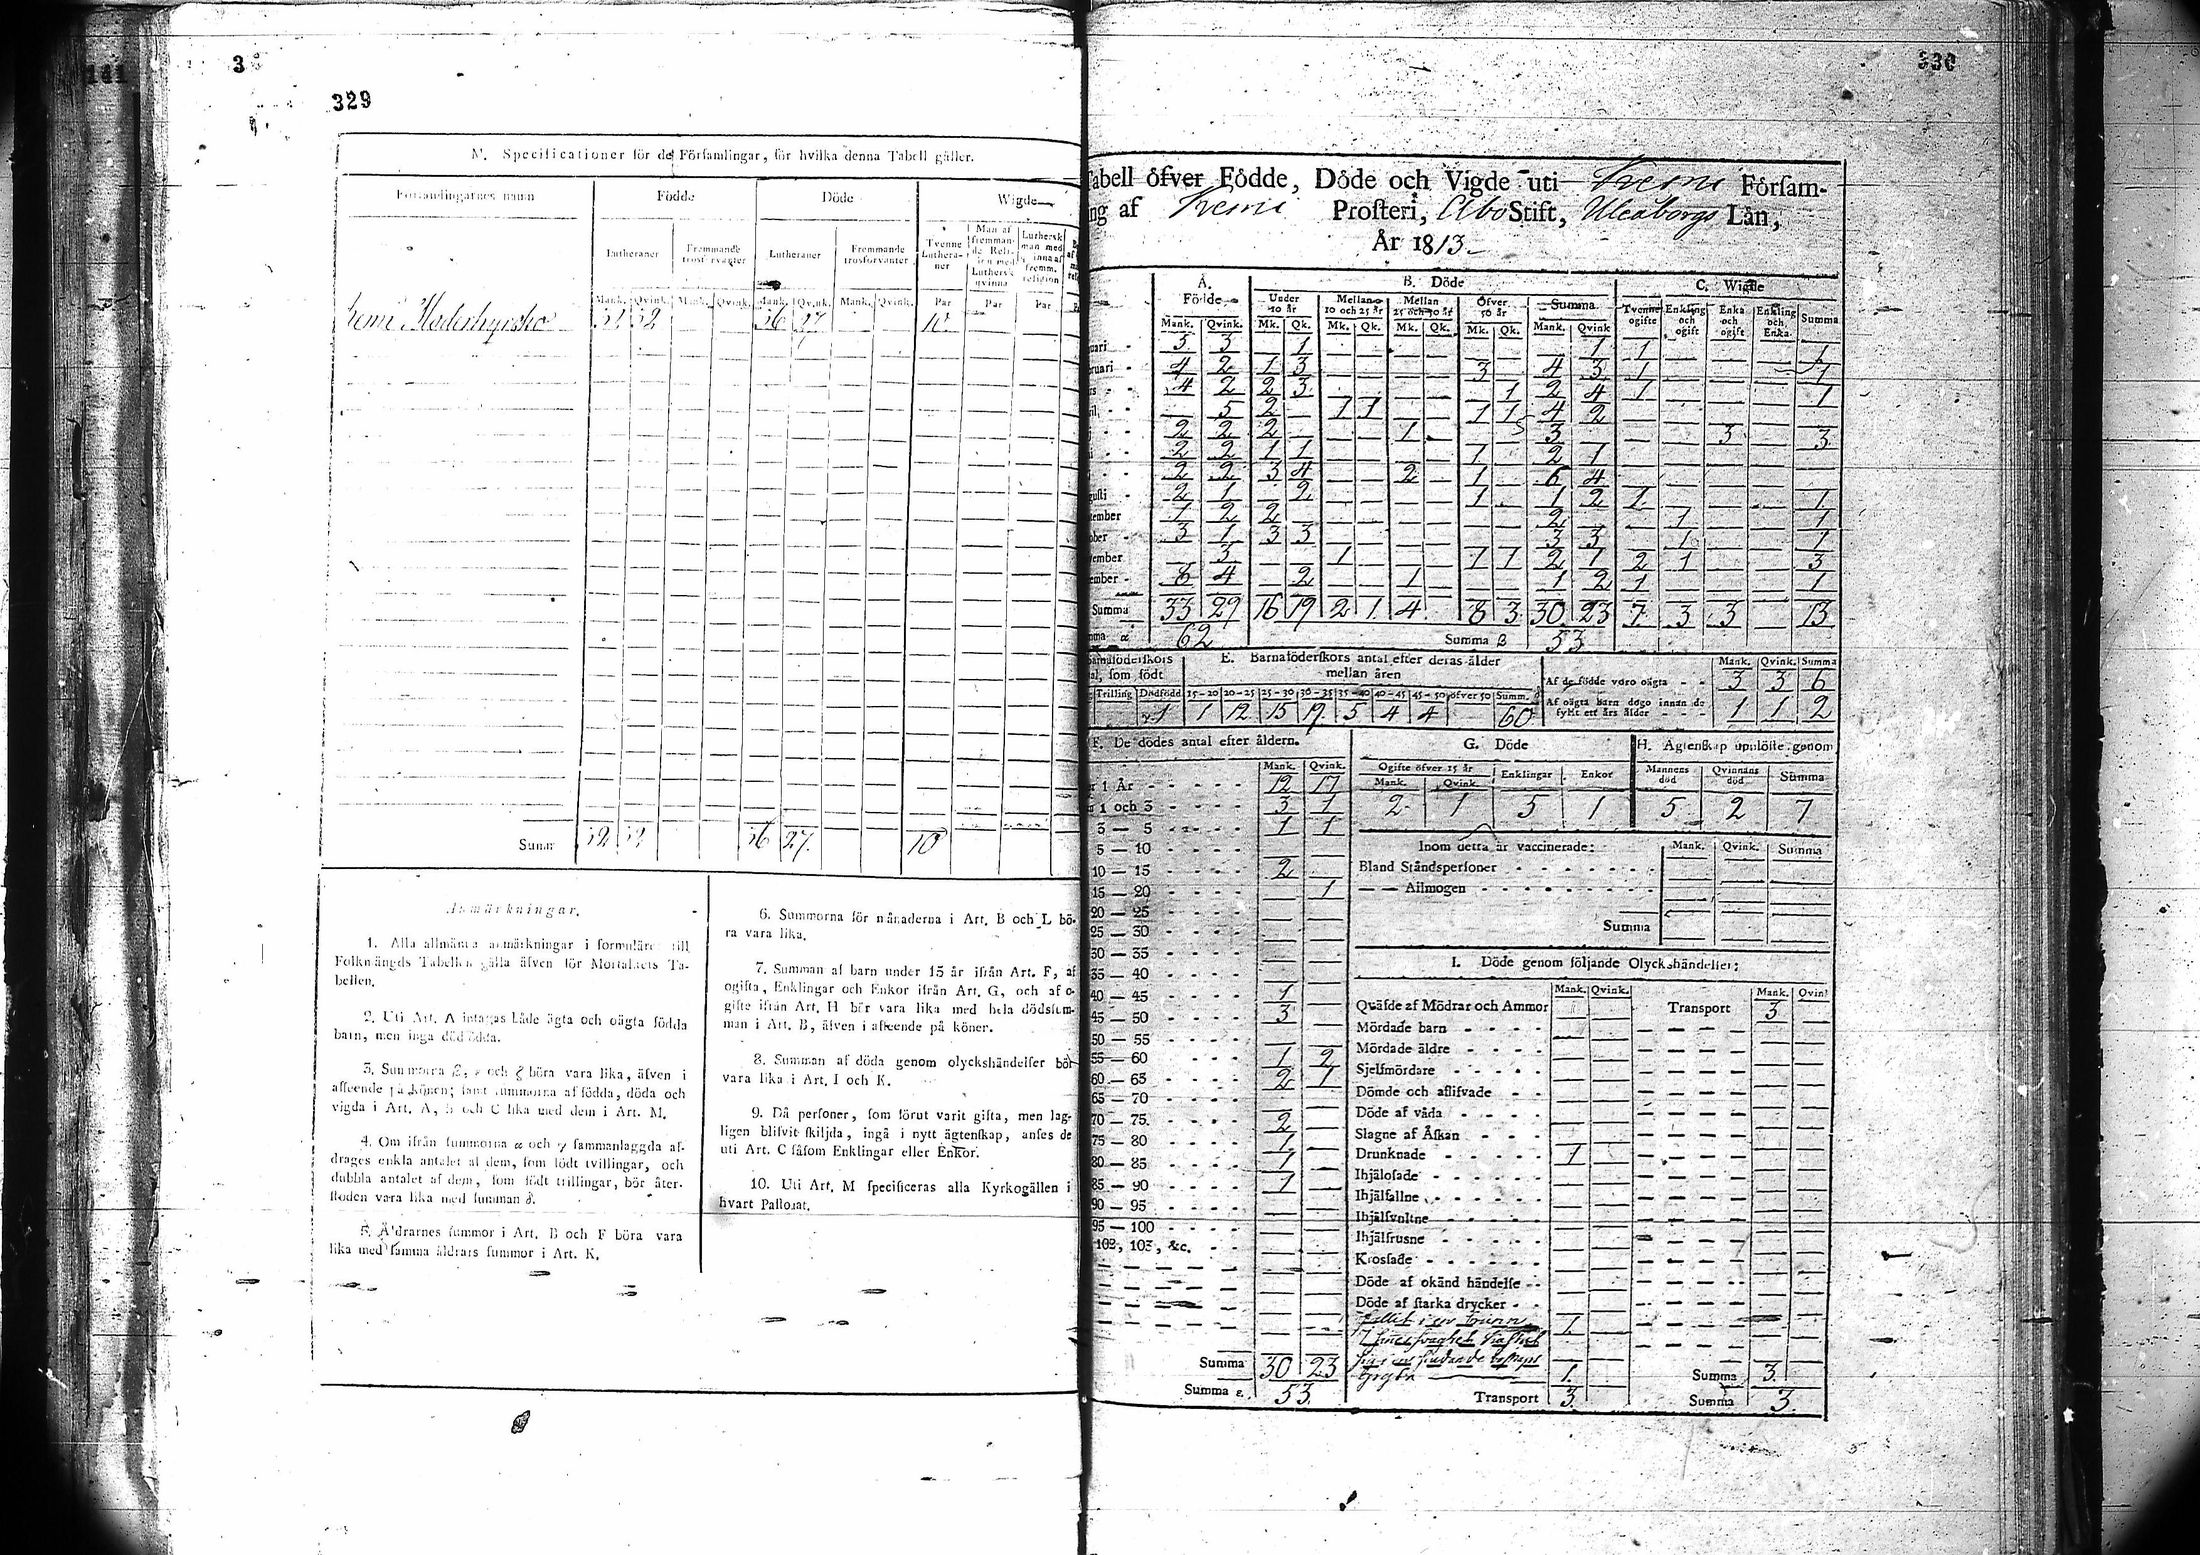 141
3
329
M. Specificationer för de Församlingar, för hvilka denna Tabell gäller.
Församlingarnes namn Födde Döde Wigde
Lutheraner Främmande trosförvanter Lutheraner Främmande trosförvanter Tvenne Lutheraner
Mank. Qvink. Mank. Qvink. Mank. Qvink. Mank. Qvink. Par Par Par
Kemi Moderkyrko 32 32 36 27 10
Summ 32 32 36 27. 10
Anmärkningar.
1. Alla allmänna anmärkningar i formuläret till
Folkmängds Tabellen gälla äfven för Mortalitets Ta-
bellen.
2. Uti Art. A intagas både ägta och oägta födda
barn, men inga dödfödda.
3. Summorna β, ε och ζ böra vara lika, äfven i
afseende på könen; samt summorna af födda, döda och
vigda i Art. A, B och C lika med dem i Art. M.
4. Om ifrån summorna α och γ sammanlaggda af-
drages enkla antalet af dem, som födt tvillingar, och
dubbla antalet af dem, som födt trillingar, bör åter-
stoden vara lika med summan δ.
5. Åldrarnes summor i Art. B och F böra vara
lika med samma åldrars summor i Art. K.
6. Summorna för månaderna i Art. B och L bö-
ra vara lika.
7. Summan af barn under 15 år ifrån Art. F, af
ogifta, Enklingar och Enkor ifrån Art. G, och af o-
gifte ifrån Art. H bör vara lika med hela dödssum-
man i Art. B, äfven i afseende på köner.
8. Summan af döda genom olyckshändelser bör
vara lika i Art. I och K.
9. Då personer, som förut varit gifta, men lag-
ligen blifvit skiljda, ingå i nytt ägtenskap, anses de
uti Art. C såsom Enklingar eller Enkor.
10. Uti Art. M specificeras alla Kyrkogällen i
hvart Pastorat.
330
Tabell öfver Födde, Döde och Vigde uti Kemi Församl-
ing af Kemi Prosteri, Åbo Stift, Uleåborgs Län,
År 1813
A. Födde B. Döde C. Wigde
Under 10 år Mellan 10 och 25 år Mellan 25 och 50 år Öfver 50 år Summa Tvenne ogifte Enkling och ogift Enka och ogift Enkling och Enka Summa
Mank. Qvink. Mk. Qk. Mk. Qk. Mk. Qk. Mk. Qk. Mank. Qvink
uari 3 3 1 1 1 1
ruari 4 2 1 3 3 4 3 1 1
rs 4 2 2 3 1 2 4 1 1
il 5 2 1 1 1 1 4 2
2 2 2 1 3 3 3
i 2 2 1 1 1 2 1
2 2 3 4 2 1 6 4
gusti 2 1 2 1 1 2 1 1
tember 1 2 2 2 1 1
ober 3 1 3 3 3 3 1 1
vember 3 1 1 1 2 1 2 1 3
ember 8 4 2 1 1 2 1 1
Summa 33 29 16 19 2 1. 4. 8 3 30 23 7. 3 3 13
mma α 62 Summa β 53
Barnaföderskors
al, som födt
Trilling Dödfödd.
γ 1
E. Barnaföderskors antal efter deras ålder
mellan åren
15-20 20-25 25-30 30-35 35-40 40-45 45-50 öfver 50 Summ. δ
1 12 15 19. 5 4 4 60
Mank. Qvink. Summa
Af de födde voro oägta 3 3 6
Af oägta barn dogo innan de
fyllt ett års ålder 1 1 2
F. De dödes antal efter åldern.
Mank. Qvink.
r 1 År 12 17
n 1 och 3 3 1
3 — 5 1 1
5 — 10
10 — 15 2
15 — 20 1
20 — 25
25 — 30
30 — 35
35 — 40
40 — 45 1
45 — 50 3
50 — 55
55 — 60 1 2
60 — 65 2 1
65 — 70
70 — 75. 2
75 — 80 1.
80 — 85 1
85 — 90 1
90 — 95
95 — 100
102, 103, &c.
Summa 30 23
Summa ε. 53.
G. Döde
Ogifte öfver 15 år Enklingar Enkor
Mank. Qvink
2 1 5 1
H. Ägtenskap uplöste genom
Mannens död Qvinnans död Summa
5 2 7
Inom detta år vaccinerade: Mank. Qvink. Summa
Bland Ståndspersoner
— — Allmogen
Summa
I. Döde genom följande Olyckshändelser:
Mank. Qvink. Mank. Qvin
Qväfde af Mödrar och Ammor Transport 3
Mördade barn
Mördade äldre
Sjelfmördare
Dömde och aflifvade
Döde af våda
Slagne af Åskan
Drunknade 1
Ihjälofade
Ihjälfallne
Ihjälsvultne
Ihjälfrusne
Krossade
Döde af okänd händelse
Döde af starka drycker
fallit i en brunn 1.
I sinnessvaghet kastat
sig i en siudande
gryta 1.
Summa 3.
Transport 3. Summa 3.